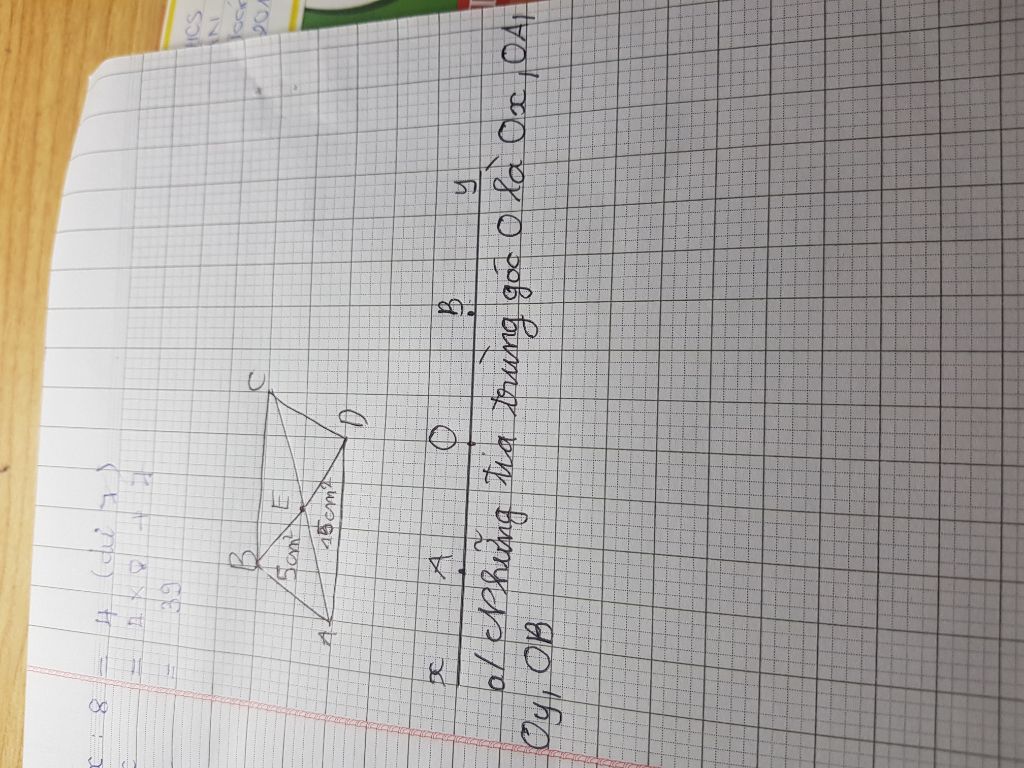 x : 8 = 4 (dư 7)
= 4 x 8 + 7
= 39
B C
E
5cm² 15cm²
A D
x A O B y
a/ Những tia trùng gốc O là Ox, OA,
Oy, OB